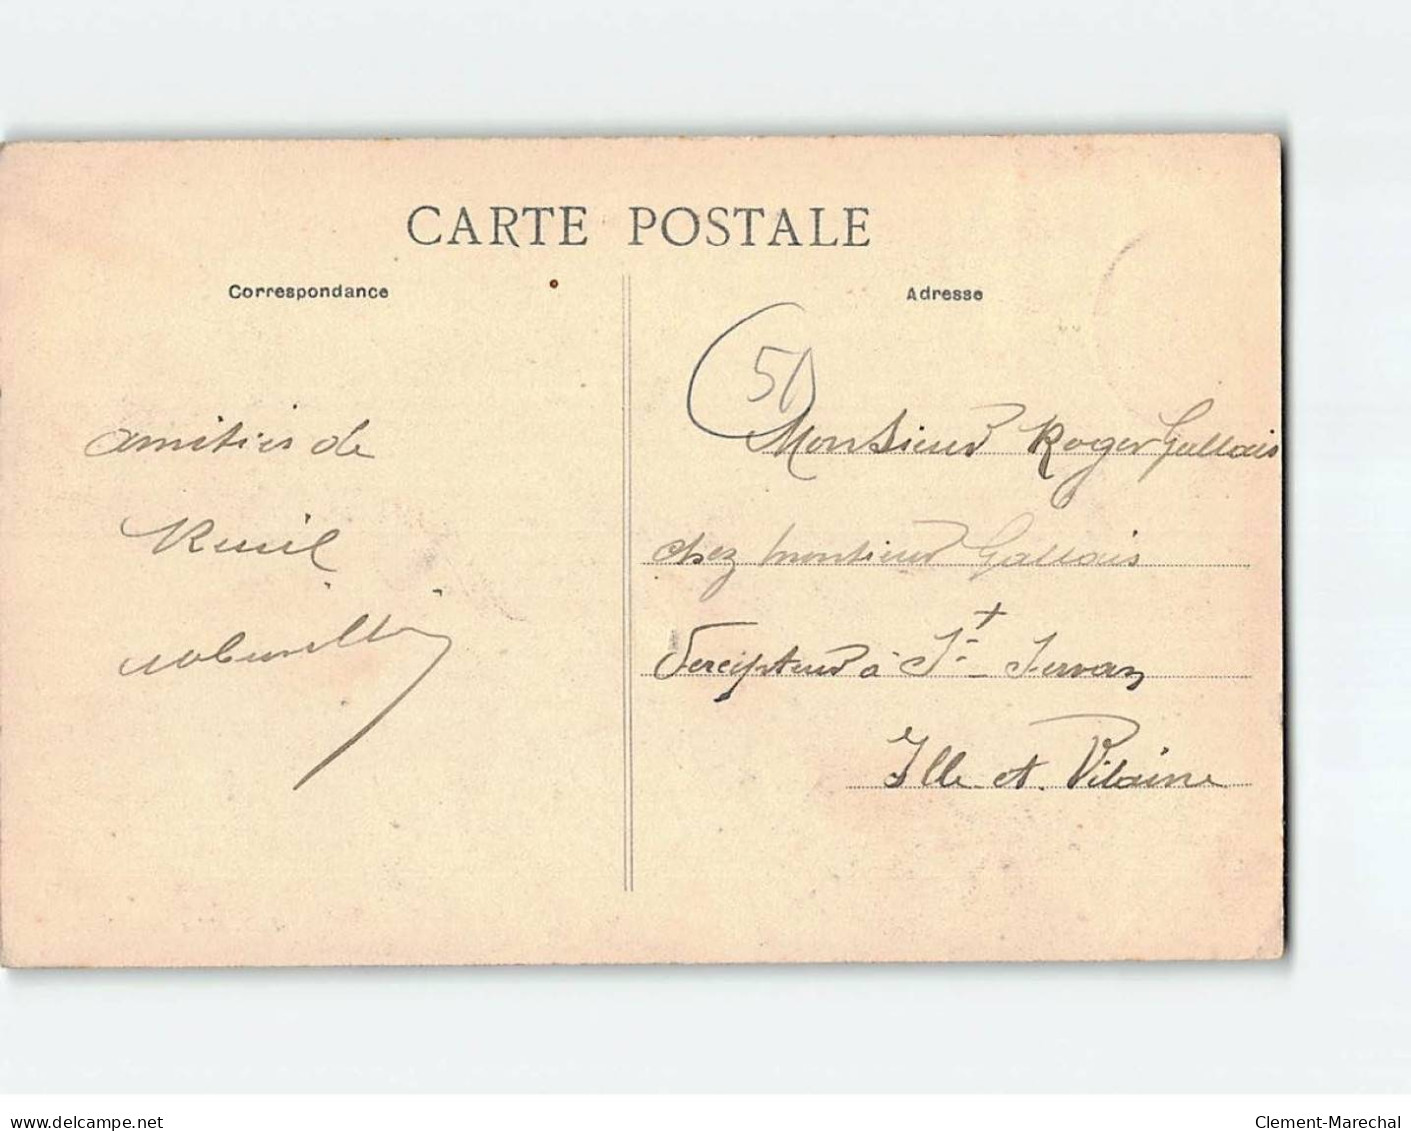 CARTE POSTALE
Correspondance
Adresse
50
amitiés de
Monsieur Roger Gallais
chez monsieur Gallais
Percepteur à St- Servan
Ille et Vilaine
www.delcampe.net
Clement-Marechal